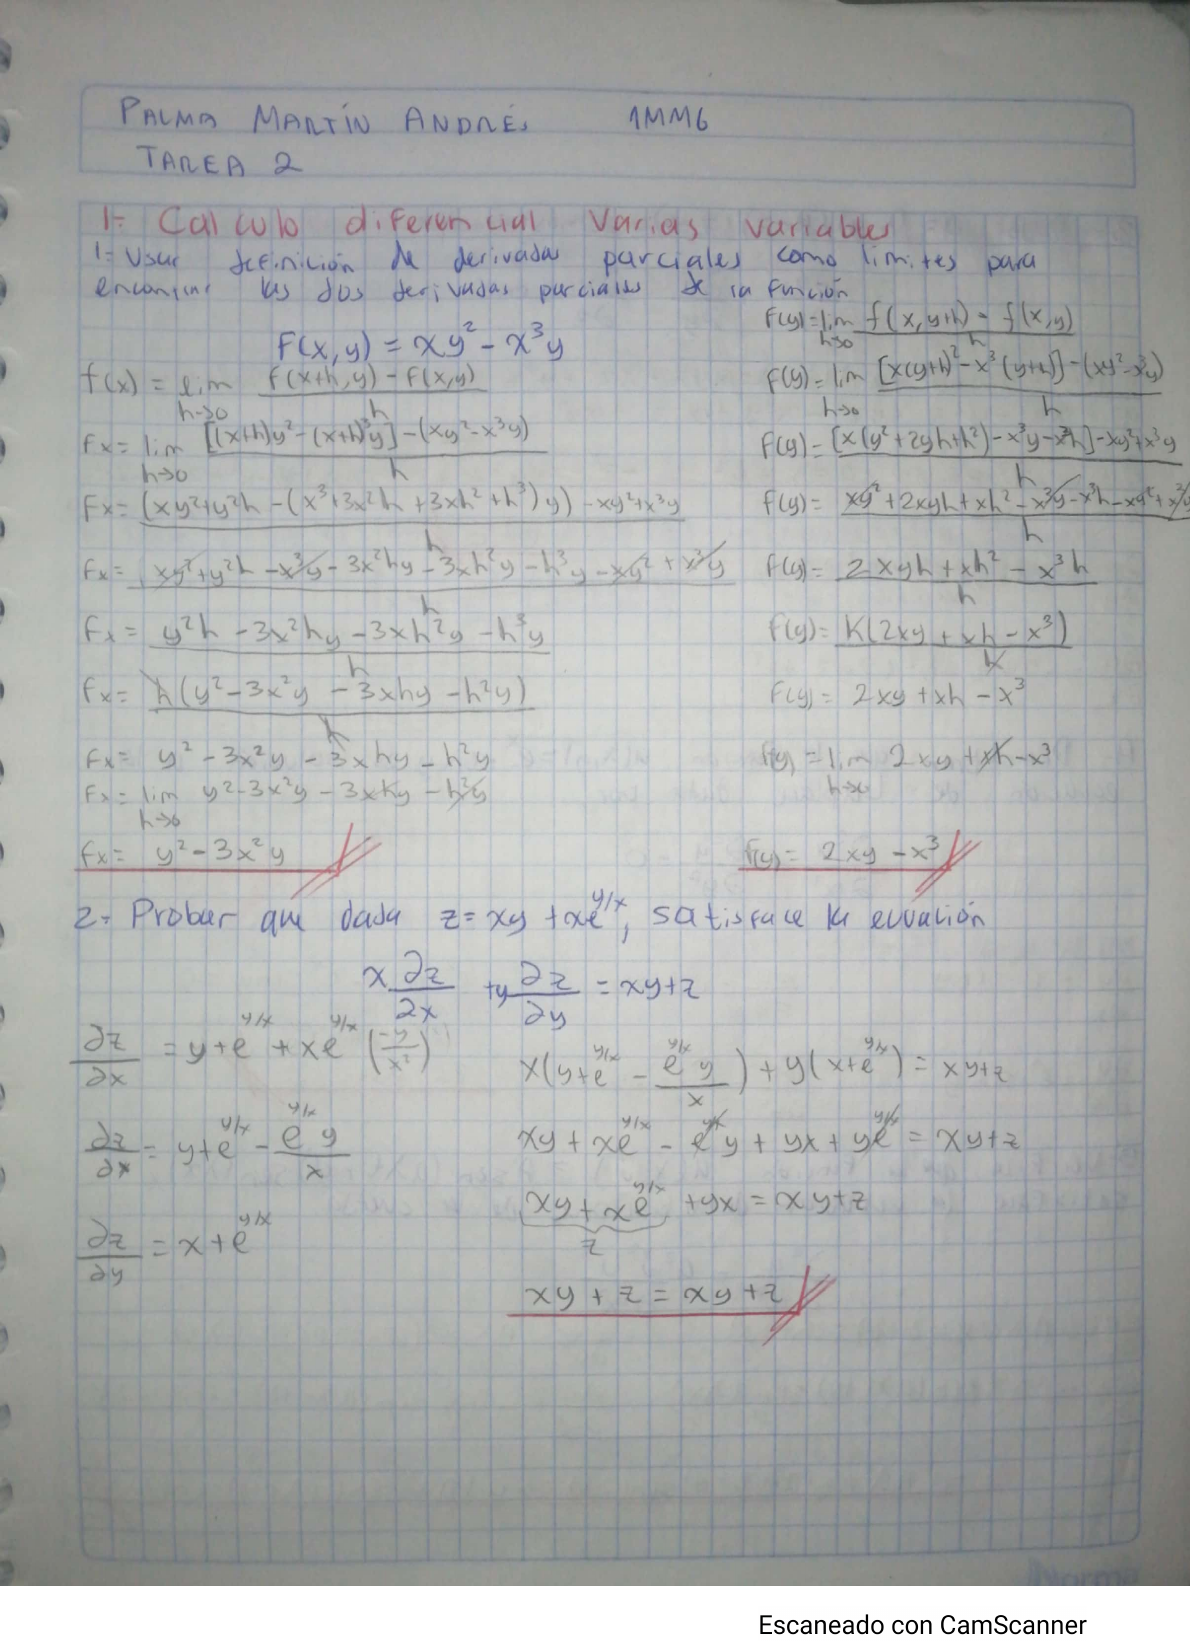 PALMA MARTÍN ANDRÉS 1MM6
TAREA 2
1.- Calculo diferencial Varias variables
1.- Usar definición de derivadas parciales como limites para
encontrar las dos derivadas parciales de la función
F(x,y) = xy² - x³y
f(x) = lim h→0 f(x+h,y) - f(x,y) / h
Fx = lim h→0 [(x+h)y² - (x+h)³y] - (xy² - x³y) / h
Fx = (xy² + y²h - (x³ + 3x²h + 3xh² + h³)y) - xy² + x³y / h
Fx = xy² + y²h - x³y - 3x²hy - 3xh²y - h³y - xy² + x³y / h
Fx = y²h - 3x²hy - 3xh²y - h³y / h
Fx = h(y² - 3x²y - 3xhy - h²y) / h
Fx = y² - 3x²y - 3xhy - h²y
Fx = lim h→0 y² - 3x²y - 3xhy - h²y
fx = y² - 3x²y
f(y) = lim h→0 f(x,y+h) - f(x,y) / h
f(y) = lim h→0 [x(y+h)² - x³(y+h)] - (xy² - x³y) / h
f(y) = [x(y² + 2yh + h²) - x³y - x³h] - xy² + x³y / h
f(y) = xy² + 2xyh + xh² - x³y - x³h - xy² + x³y / h
f(y) = 2xyh + xh² - x³h / h
f(y) = h(2xy + xh - x³) / h
F(y) = 2xy + xh - x³
f(y) = lim h→0 2xy + xh - x³
f(y) = 2xy - x³
2.- Probar que dada z = xy + xe^{y/x}, satisface la ecuación
x ∂z/∂x + y ∂z/∂y = xy + z
∂z/∂x = y + e^{y/x} + xe^{y/x} (-y/x²)
∂z/∂x = y + e^{y/x} - e^{y/x} y / x
∂z/∂y = x + e^{y/x}
x(y + e^{y/x} - e^{y/x} y / x) + y(x + e^{y/x}) = xy + z
xy + xe^{y/x} - e^{y/x} y + yx + ye^{y/x} = xy + z
xy + xe^{y/x} + yx = xy + z
z
xy + z = xy + z
Escaneado con CamScanner